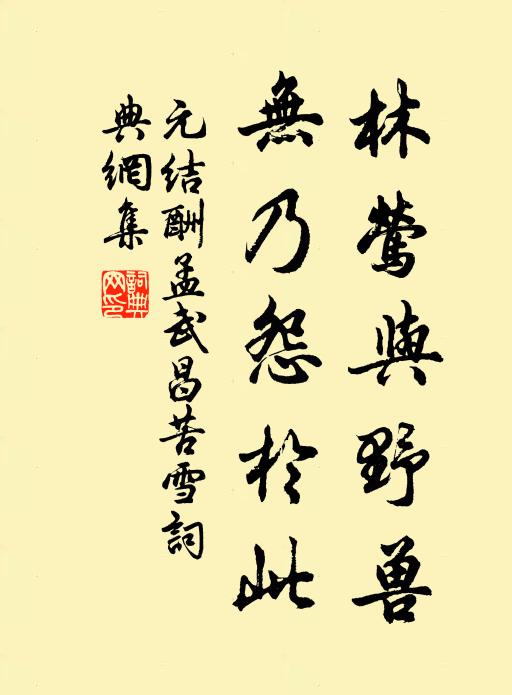 林鶯與野兽
無乃怨於此
元结酬孟武昌苦雪詞
典網集
詞典
网印